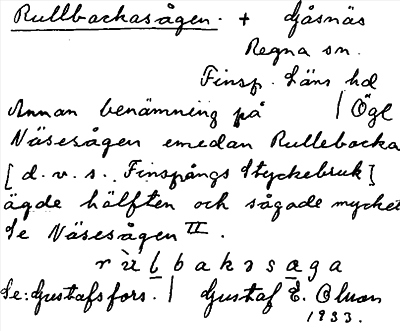 Rullbackasågen. + Gåsnäs
Regna sn.
Finsp. Läns hd
Annan benämning på | Ögl
Näsesågen emedan Rullebacka
[d. v. s. Finspångs Styckebruk]
ägde hälften och sågade mycket
Se Näsesågen II.
rùlbakəsaga
Se: Gustafsfors. | Gustaf E. Olson
1933.